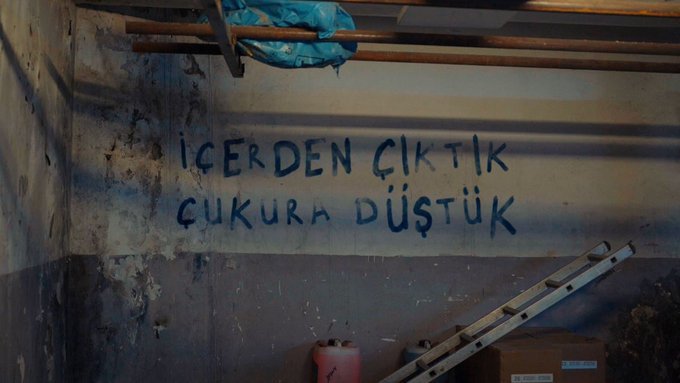 İÇERDEN ÇIKTIK
ÇUKURA DÜŞTÜK